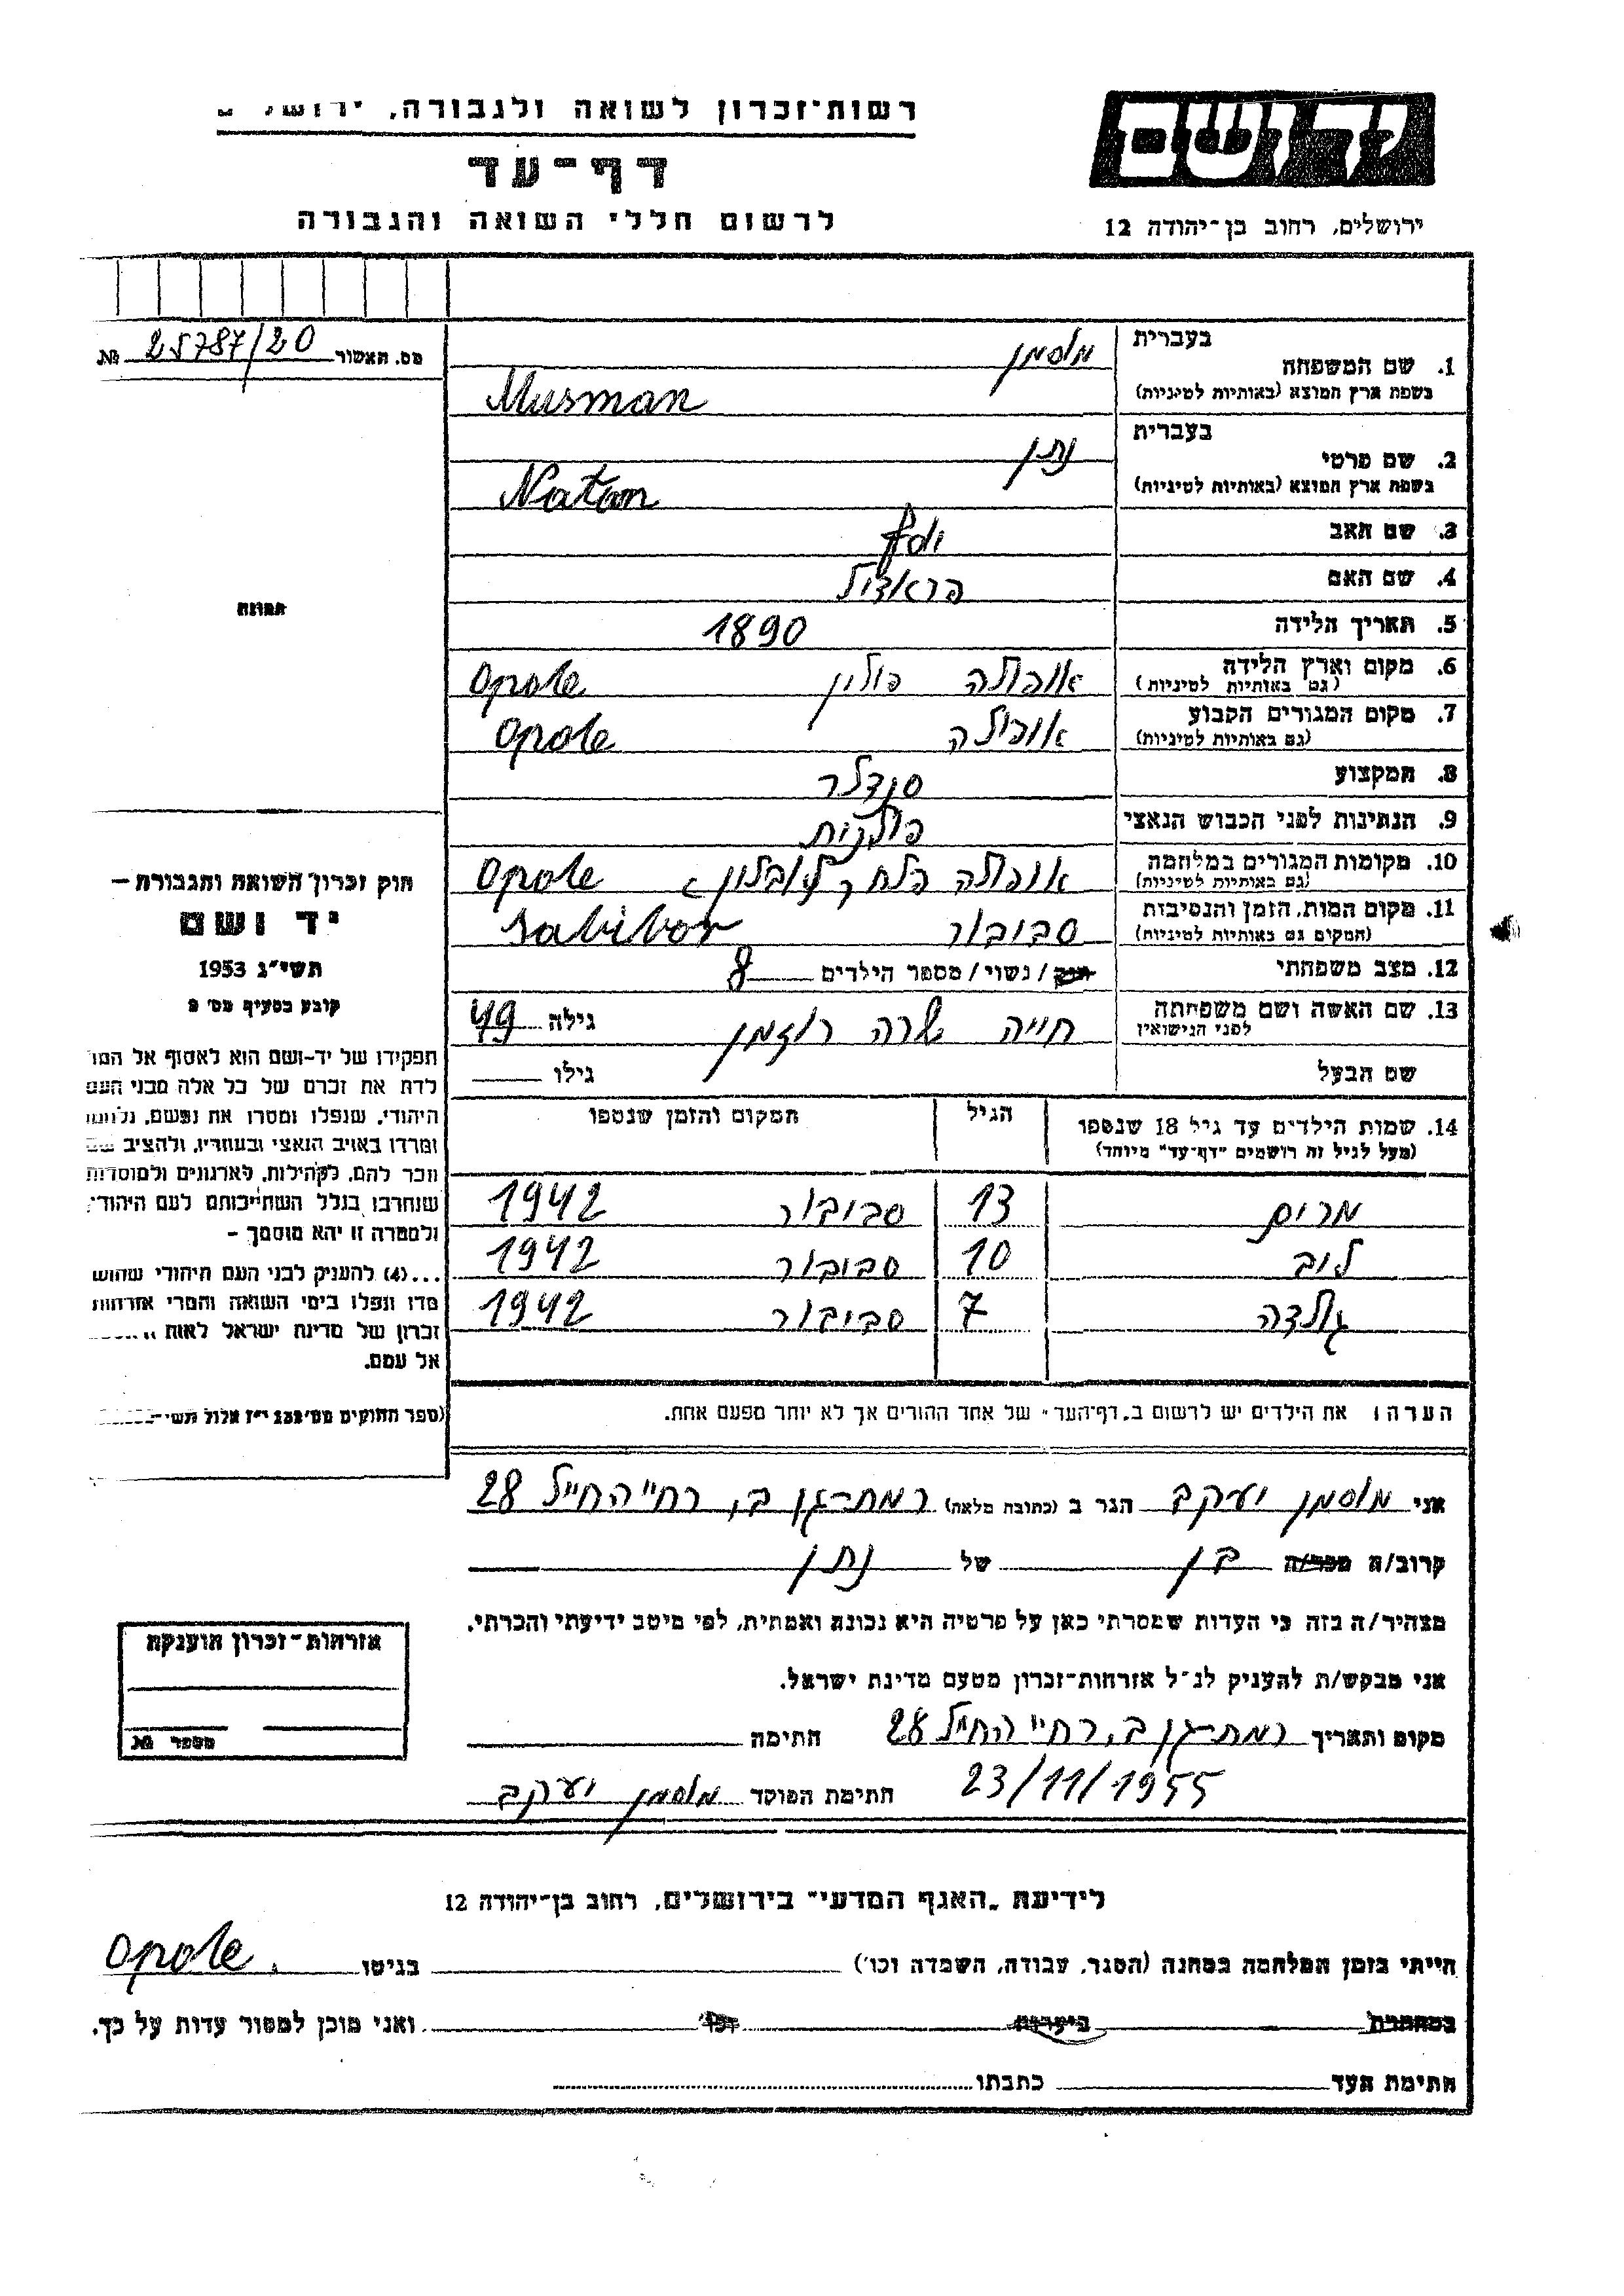 יד ושם
ירושלים, רחוב בן-יהודה 12
רשות-זכרון לשואה ולגבורה,
דף-עד
לרשום חללי השואה והגבורה
מס. האשור 25787/20 №
תמונה
1. שם המשפחה בעברית מוסמן
בשפת ארץ המוצא (באותיות לטיניות) Musman
2. שם פרטי בעברית נתן
בשפת ארץ המוצא (באותיות לטיניות) Natan
3. שם האב יוסף
4. שם האם פראדיל
5. תאריך הלידה 1890
6. מקום וארץ הלידה אופולה פולין Opole
(גם באותיות לטיניות)
7. מקום המגורים הקבוע אופולה Opole
(גם באותיות לטיניות)
8. המקצוע סנדלר
9. הנתינות לפני הכבוש הנאצי פולנית
10. מקומות המגורים במלחמה אופולה פלך לובלין Opole
(גם באותיות לטיניות)
11. מקום המות, הזמן והנסיבות סביבור Sabibor
(המקום גם באותיות לטיניות)
12. מצב משפחתי רווק / נשוי / מספר הילדים 8
13. שם האשה ושם משפחתה חייה שרה רוזמן גילה 49
לפני הנישואין
שם הבעל גילו
14. שמות הילדים עד גיל 18 שנספו הגיל המקום והזמן שנספו
(מעל לגיל זה רושמים "דף-עד" מיוחד)
מרים 13 סביבור 1942
לוב 10 סביבור 1942
גולדה 7 סביבור 1942
הערה: את הילדים יש לרשום ב"דף-העד" של אחד ההורים אך לא יותר מפעם אחת.
חוק זכרון השואה והגבורה —
יד ושם
תשי"ג 1953
קובע בסעיף מס' 2
תפקידו של יד-ושם הוא לאסוף אל
לדת את זכרם של כל אלה מבני העם
היהודי, שנפלו ומסרו את נפשם,
ומרדו באויב הנאצי ובעוזריו, ולהציב שם
וזכר להם, לקהילות, לארגונים ולמוסדות
שנחרבו בגלל השתייכותם לעם היהודי,
ולמטרה זו יהא מוסמך -
...(4) להעניק לבני העם היהודי שהוש
מדו ונפלו בימי השואה והמרי אזרחות
זכרון של מדינת ישראל לאות
אל עמם.
(ספר החוקים מס' 132 י"ז אלול תשי
אני מוסמן יעקב הגר ב (כתובת מלאה) רמת-גן ב, רח' החייל 28
קרוב/ה מכר/ה בן של נתן
מצהיר/ה בזה כי העדות שמסרתי כאן על פרטיה היא נכונה ואמתית, לפי מיטב ידיעתי והכרתי.
אני מבקש/ת להעניק לנ"ל אזרחות-זכרון מטעם מדינת ישראל.
מקום ותאריך רמת-גן ב, רח' החייל 28 חתימה
23/11/1955 חתימת הפוקד מוסמן יעקב
אזרחות-זכרון הוענקה
מספר №
לידיעת "האגף המדעי" בירושלים, רחוב בן-יהודה 12
הייתי בזמן המלחמה במחנה (הסגר, עבודה, השמדה וכו') בגיטו Opole
במחתרת ביערות וכו' ואני מוכן למסור עדות על כך.
חתימת העד כתבתו